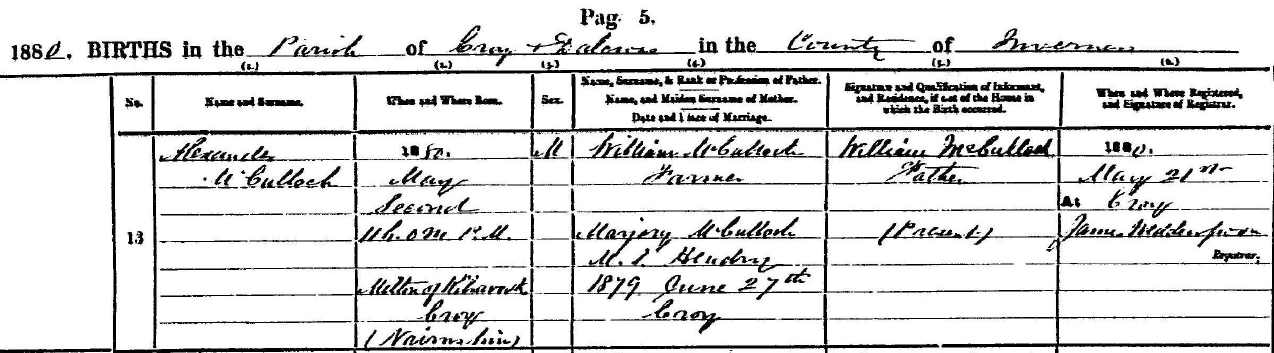 Pag. 5.
1880. BIRTHS in the Parish of Croy & Dalcross in the County of Inverness
(1.) (2.) (3.) (4.) (5.) (6.)
No. Name and Surname. When and Where Born. Sex. Name, Surname, & Rank or Profession of Father. Name, and Maiden Surname of Mother. Date and Place of Marriage. Signature and Qualification of Informant, and Residence, if out of the House in which the Birth occurred. When and Where Registered, and Signature of Registrar.
Alexander 1880. M William McCulloch William McCulloch 1880.
McCulloch May Farmer Father May 21st
Second At Croy
13 11 h. 0 m. P.M. Marjory McCulloch (Present) James
M.S. Hendry Registrar.
Milton of Kilravock 1879 June 27th
Croy Croy
(Nairnshire)